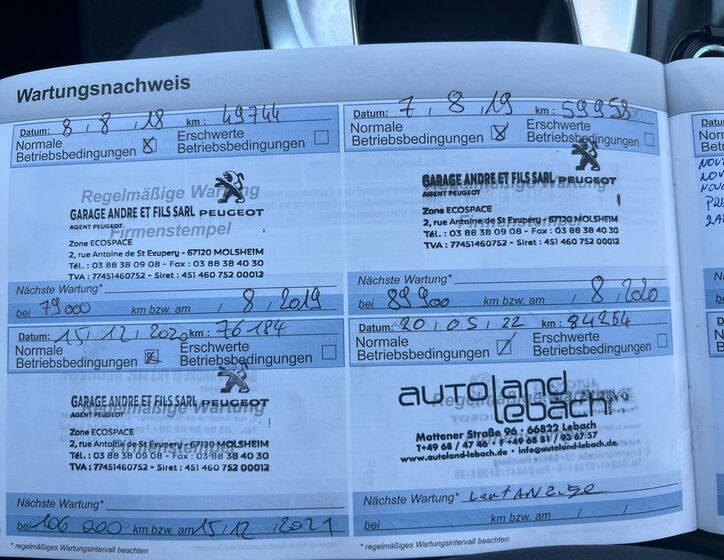 Wartungsnachweis
Datum: 8, 8, 18 km: 49744
Normale Betriebsbedingungen
Erschwerte Betriebsbedingungen
Regelmäßige Wartung
GARAGE ANDRE ET FILS SARL PEUGEOT
AGENT PEUGEOT
Firmenstempel
Zone ECOSPACE
2, rue Antoine de St Exupery - 67120 MOLSHEIM
Tél. : 03 88 38 09 08 - Fax : 03 88 38 40 30
TVA : 77451460752 - Siret : 451 460 752 00012
Nächste Wartung*
bei 79000 km bzw. am / 8, 2019
Datum: 7, 8, 19 km: 59958
Normale Betriebsbedingungen
Erschwerte Betriebsbedingungen
GARAGE ANDRE ET FILS SARL PEUGEOT
AGENT PEUGEOT
Zone ECOSPACE
2, rue Antoine de St Exupery - 67120 MOLSHEIM
Tél. : 03 88 38 09 08 - Fax : 03 88 38 40 30
TVA : 77451460752 - Siret : 451 460 752 00012
Nächste Wartung*
bei 89900 km bzw. am / 8, 2020
Datum: 15, 12, 2020 km: 76184
Normale Betriebsbedingungen
Erschwerte Betriebsbedingungen
GARAGE ANDRE ET FILS SARL PEUGEOT
Regelmäßige Wartung
AGENT PEUGEOT
Zone ECOSPACE
2, rue Antoine de St Exupery - 67120 MOLSHEIM
Firmenstempel
Tél. : 03 88 38 09 08 - Fax : 03 88 38 40 30
TVA : 77451460752 - Siret : 451 460 752 00012
Nächste Wartung*
bei 106 000 km bzw. am 15, 12, 2021
* regelmäßiges Wartungsintervall beachten
Datum: 20, 05, 22 km: 84254
Normale Betriebsbedingungen
Erschwerte Betriebsbedingungen
autoland
lebach
Mottener Straße 96 · 66822 Lebach
T+49 68 / 47 46 · F +49 68 81 / 93 67 57
www.autoland-lebach.de · info@autoland-lebach.de
Nächste Wartung* Laut ANzeige
bei km bzw. am / /
* regelmäßiges Wartungsintervall beachten